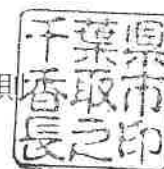 千葉県
香取市
長之印